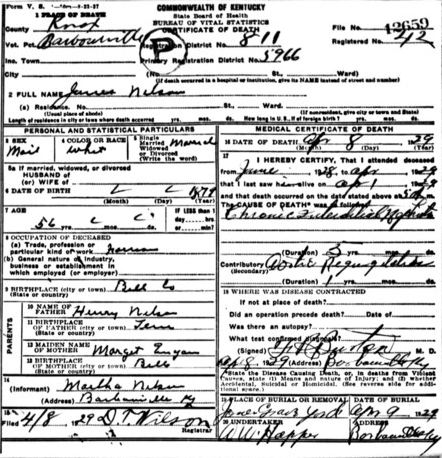 Form V. S.
COMMONWEALTH OF KENTUCKY
1 PLACE OF DEATH
State Board of Health
BUREAU OF VITAL STATISTICS
CERTIFICATE OF DEATH
County Knox
File No. 12659
Vot. Pct. Barbourville
Registration District No. 811
Registered No. 42
Inc. Town
Primary Registration District No. 5966
City
(No. St., Ward)
(If death occurred in a hospital or institution, give its NAME instead of street and number)
2 FULL NAME James Nelson
(a) Residence. No. St., Ward.
(Usual place of abode)
(If nonresident, give city or town and State)
Length of residence in city or town where death occurred yrs. mos. ds.
How long in U. S., if of foreign birth? yrs. mos. ds.
PERSONAL AND STATISTICAL PARTICULARS
3 SEX
Mail
4 COLOR OR RACE
whit
5 Single
Married
Widowed
or Divorced
(Write the word)
Married
5a If married, widowed, or divorced
HUSBAND of
(or) WIFE of
6 DATE OF BIRTH
(Month) (Day) (Year)
7 AGE
56
If LESS than
1 day, hrs.
or min.
8 OCCUPATION OF DECEASED
(a) Trade, profession or
particular kind of work
(b) General nature of industry,
business or establishment in
which employed (or employer)
9 BIRTHPLACE (city or town) Bell Co
(State or country)
PARENTS
10 NAME OF
FATHER Henry Nelson
11 BIRTHPLACE
OF FATHER (city or town) Tenn
(State or country)
12 MAIDEN NAME
OF MOTHER Morget
13 BIRTHPLACE
OF MOTHER (city or town) Bell
(State or country)
14
(Informant) Martha Nelson
(Address) Barbourville Ky
15
Filed 4/8 1929 D.T. Wilson
Registrar
MEDICAL CERTIFICATE OF DEATH
16 DATE OF DEATH Apr 8 1929
(Month) (Day) (Year)
17
I HEREBY CERTIFY, That I attended deceased
from June 1928 to Apr 1929
that I last saw him alive on Apr 1 1929
and that death occurred on the date stated above at m.
The CAUSE OF DEATH* was as follows:
Chronic Interstitial Nephritis
(Duration) 5
Contributory Aortic Regurgitation
(Secondary)
(Duration) 1
18 WHERE WAS DISEASE CONTRACTED
If not at place of death?
Did an operation precede death? Date of
Was there an autopsy?
What test confirmed diagnosis?
(Signed) M. D.
Apr 8 1929 (Address) Barbourville Ky
*State the Disease Causing Death, or in deaths from Violent
Causes, state (1) Means and Nature of Injury; and (2) whether
Accidental, Suicidal or Homicidal. (See reverse side for additional space).
19 PLACE OF BURIAL OR REMOVAL
DATE OF BURIAL
Apr 9 1929
20 UNDERTAKER
W.W. Hopper
ADDRESS
Barbourville Ky